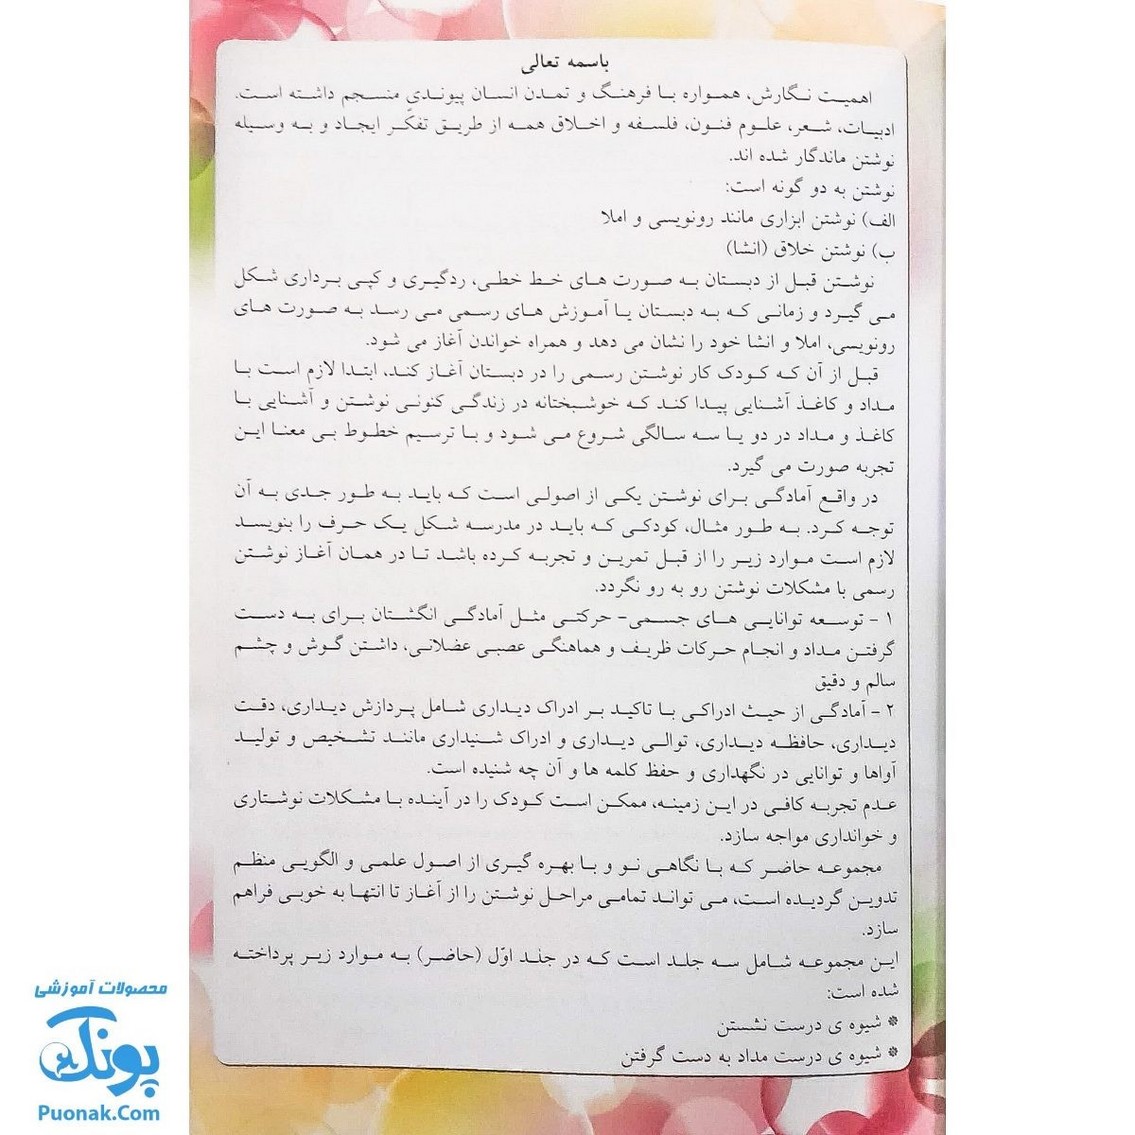 باسمه تعالی
اهمیت نگارش، همواره با فرهنگ و تمدن انسان پیوندی منسجم داشته است.
ادبیات، شعر، علوم فنون، فلسفه و اخلاق همه از طریق تفکر ایجاد و به وسیله
نوشتن ماندگار شده اند.
نوشتن به دو گونه است:
الف) نوشتن ابزاری مانند رونویسی و املا
ب) نوشتن خلاق (انشا)
نوشتن قبل از دبستان به صورت های خط خطی، ردگیری و کپی برداری شکل
می گیرد و زمانی که به دبستان یا آموزش های رسمی می رسد به صورت های
رونویسی، املا و انشا خود را نشان می دهد و همراه خواندن آغاز می شود.
قبل از آن که کودک کار نوشتن رسمی را در دبستان آغاز کند، ابتدا لازم است با
مداد و کاغذ آشنایی پیدا کند که خوشبختانه در زندگی کنونی نوشتن و آشنایی با
کاغذ و مداد در دو یا سه سالگی شروع می شود و با ترسیم خطوط بی معنا این
تجربه صورت می گیرد.
در واقع آمادگی برای نوشتن یکی از اصولی است که باید به طور جدی به آن
توجه کرد. به طور مثال، کودکی که باید در مدرسه شکل یک حرف را بنویسد
لازم است موارد زیر را از قبل تمرین و تجربه کرده باشد تا در همان آغاز نوشتن
رسمی با مشکلات نوشتن رو به رو نگردد.
۱ - توسعه توانایی های جسمی- حرکتی مثل آمادگی انگشتان برای به دست
گرفتن مداد و انجام حرکات ظریف و هماهنگی عصبی عضلانی، داشتن گوش و چشم
سالم و دقیق
۲ - آمادگی از حیث ادراکی با تاکید بر ادراک دیداری شامل پردازش دیداری، دقت
دیداری، حافظه دیداری، توالی دیداری و ادراک شنیداری مانند تشخیص و تولید
آواها و توانایی در نگهداری و حفظ کلمه ها و آن چه شنیده است.
عدم تجربه کافی در این زمینه، ممکن است کودک را در آینده با مشکلات نوشتاری
و خوانداری مواجه سازد.
مجموعه حاضر که با نگاهی نو و با بهره گیری از اصول علمی و الگویی منظم
تدوین گردیده است، می تواند تمامی مراحل نوشتن را از آغاز تا انتها به خوبی فراهم
سازد.
این مجموعه شامل سه جلد است که در جلد اوّل (حاضر) به موارد زیر پرداخته
شده است:
* شیوه ی درست نشستن
* شیوه ی درست مداد به دست گرفتن
محصولات آموزشی
پونک
Puonak.Com